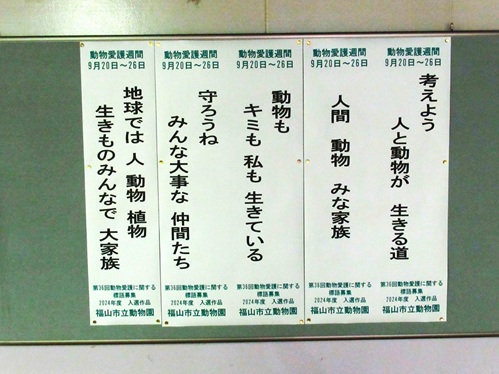 動物愛護週間
9月20日～26日
考えよう
人と動物が 生きる道
第36回動物愛護に関する
標語募集
2024年度 入選作品
福山市立動物園
動物愛護週間
9月20日～26日
人間 動物 みな家族
第36回動物愛護に関する
標語募集
2024年度 入選作品
福山市立動物園
動物愛護週間
9月20日～26日
動物も
キミも 私も 生きている
第36回動物愛護に関する
標語募集
2024年度 入選作品
福山市立動物園
動物愛護週間
9月20日～26日
守ろうね
みんな大事な 仲間たち
第36回動物愛護に関する
標語募集
2024年度 入選作品
福山市立動物園
動物愛護週間
9月20日～26日
地球では 人 動物 植物
生きものみんなで 大家族
第36回動物愛護に関する
標語募集
2024年度 入選作品
福山市立動物園